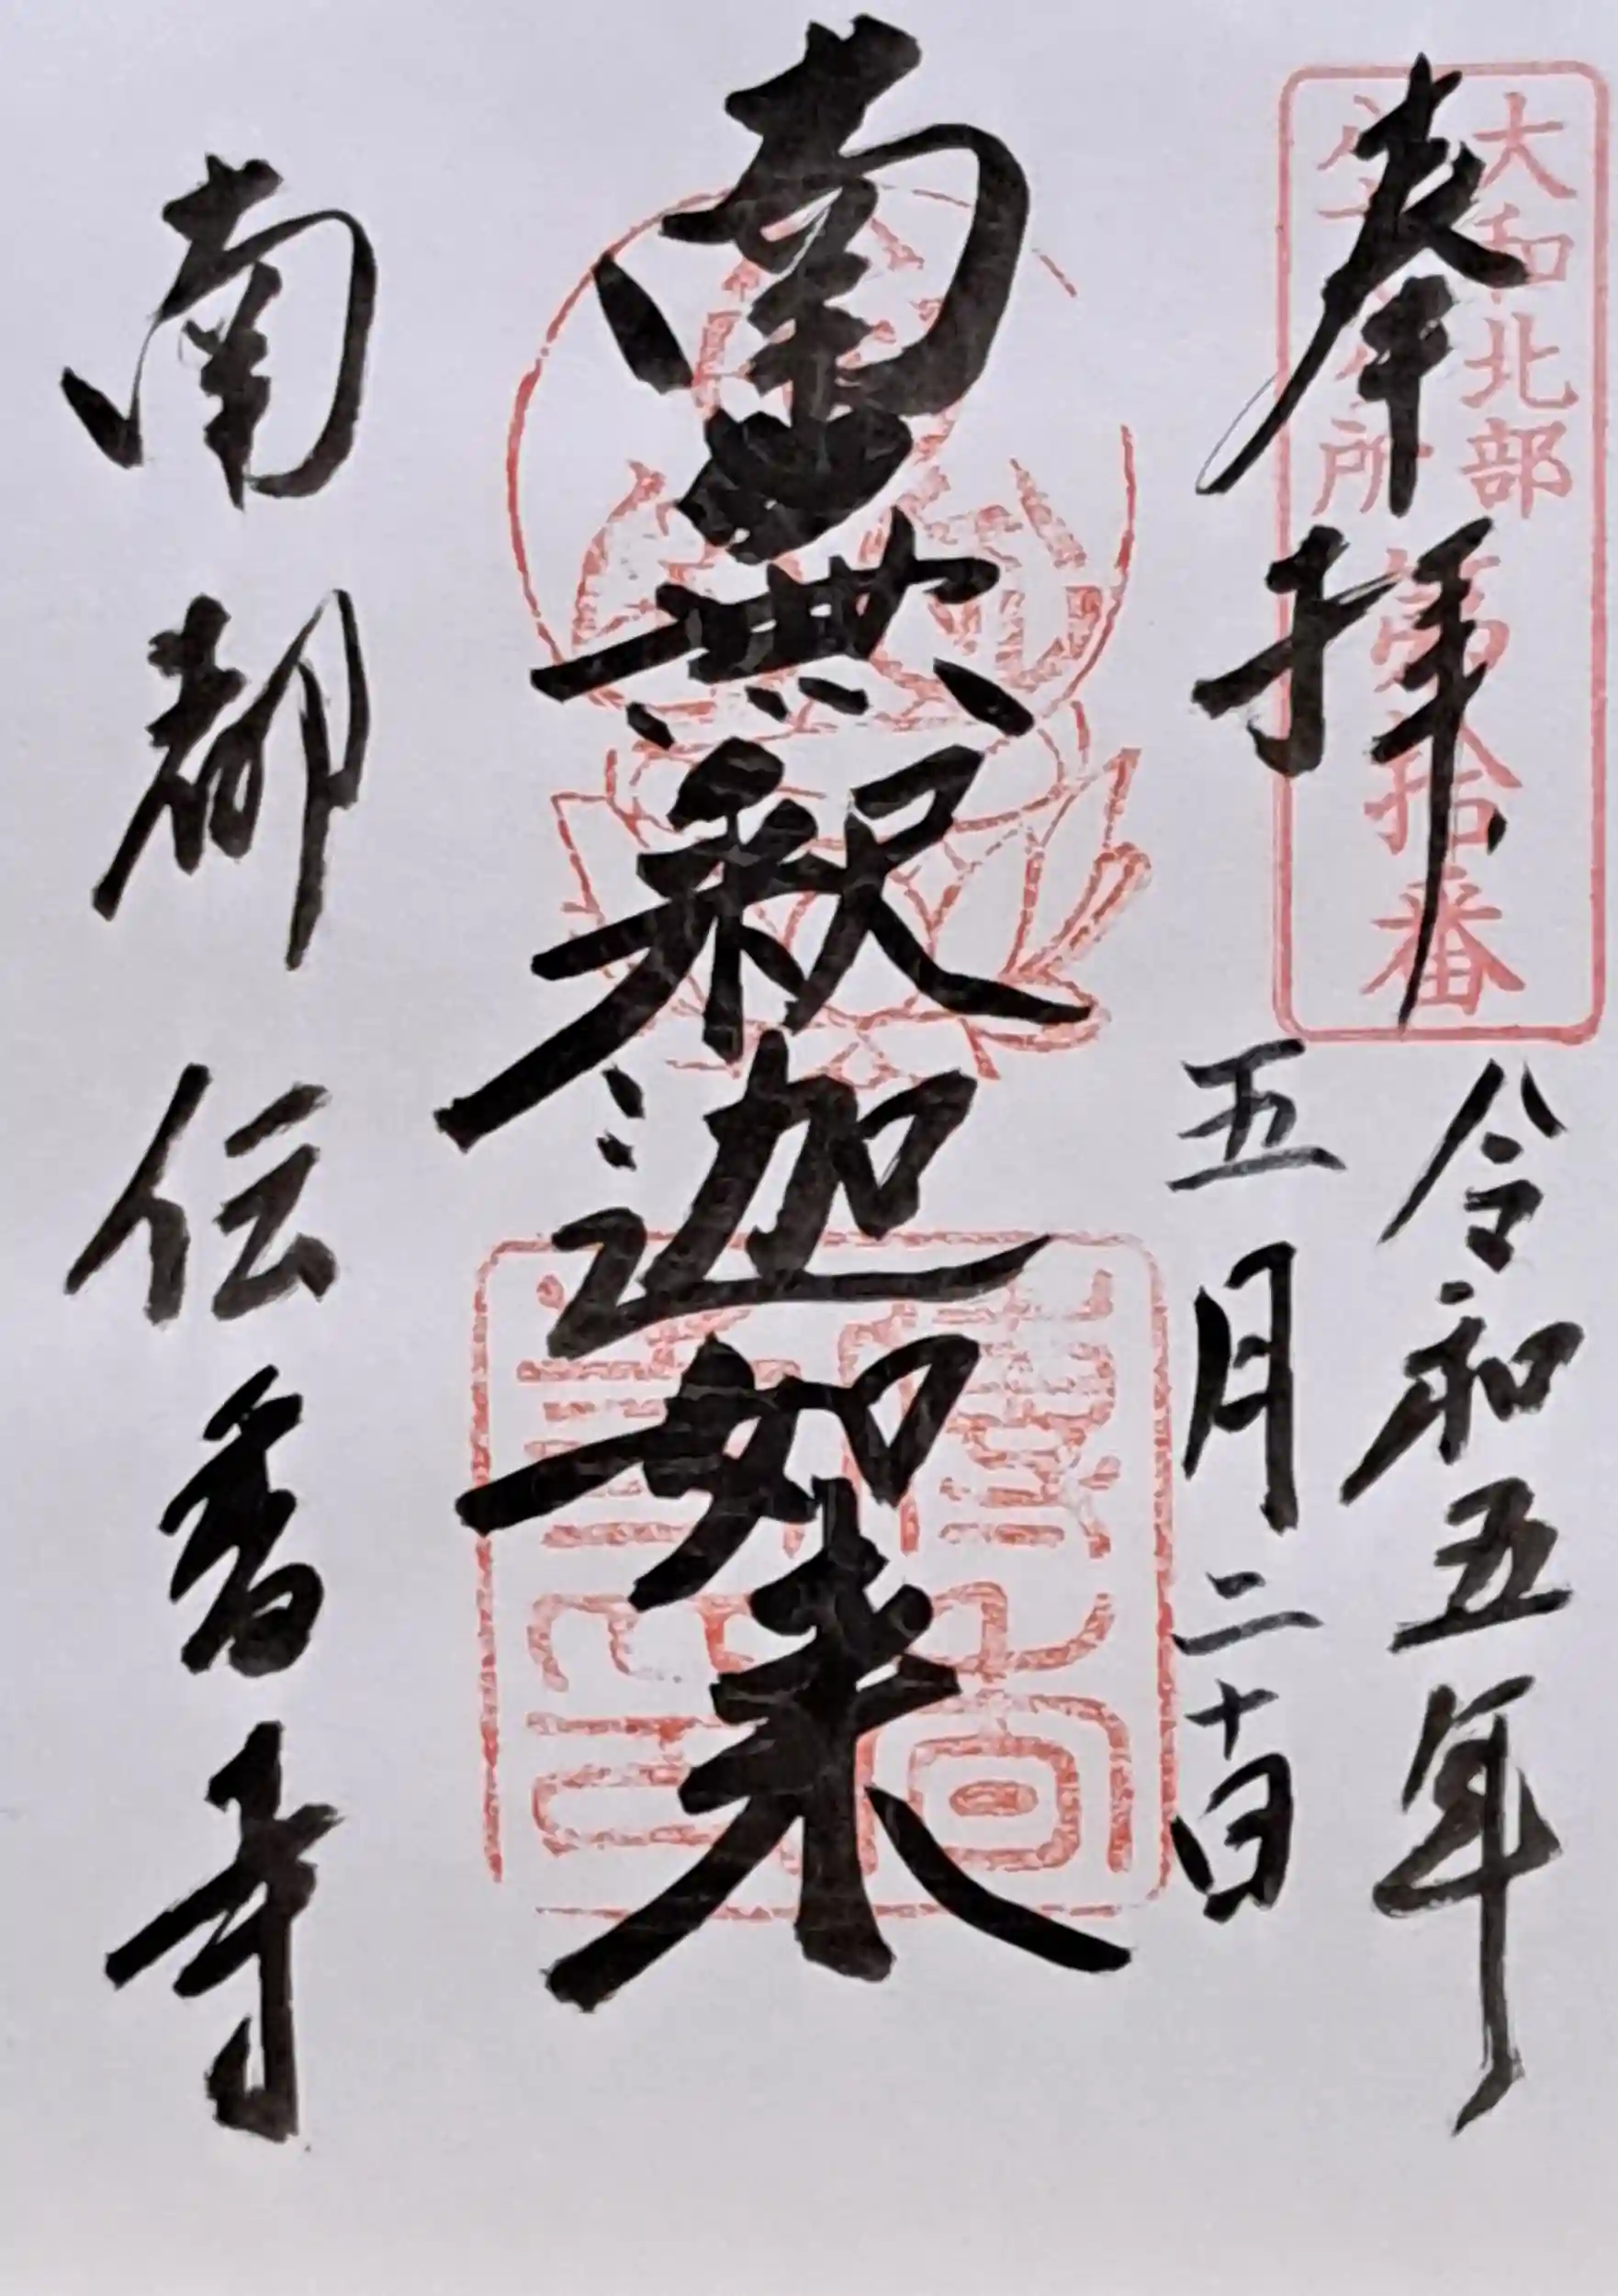 奉拝
大和北部
八十八ヶ所
第拾番
令和五年
五月二十日
南無釈迦如来
南都伝香寺